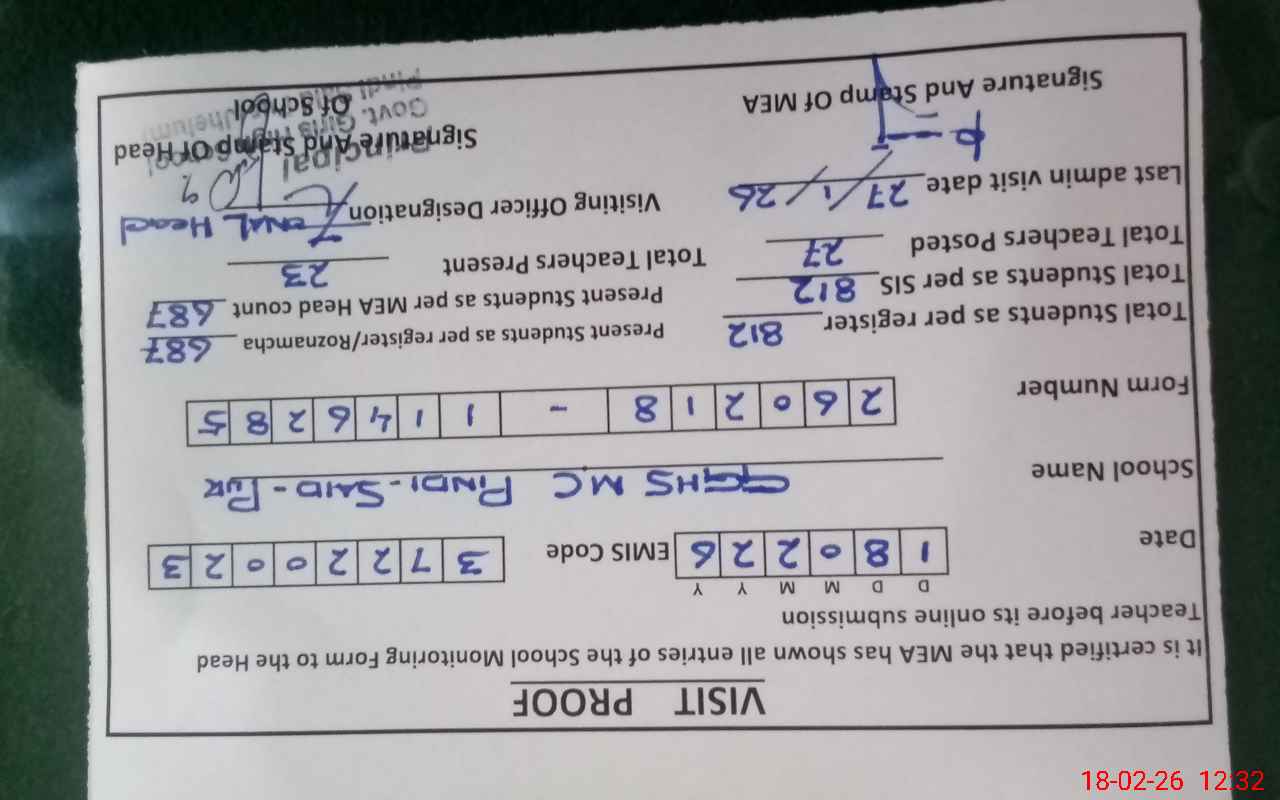 VISIT PROOF
It is certified that the MEA has shown all entries of the School Monitoring Form to the Head
Teacher before its online submission
D D M M Y Y
Date 1 8 0 2 2 6 EMIS Code 3 7 2 2 0 0 2 3
School Name GGHS MC PINDI-SAID-PUR
Form Number 2 6 0 2 1 8 - 1 1 4 6 2 8 5
Total Students as per register 812 Present Students as per register/Roznamcha 687
Total Students as per SIS 812 Present Students as per MEA Head count 687
Total Teachers Posted 27 Total Teachers Present 23
Last admin visit date 27/1/26 Visiting Officer Designation ZONAL Head
Signature And Stamp Of MEA Signature And Stamp Of Head
Of School
Principal
Govt. Girls High School
18-02-26 12:32